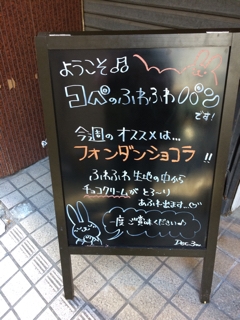 ようこそ♫
コペのふわふわパン
です!
今週のオススメは…
フォンダンショコラ!!
ふわふわ生地の中から
チョコクリームが とろ〜り
あふれ出ます…
一度ご賞味くださいね♪